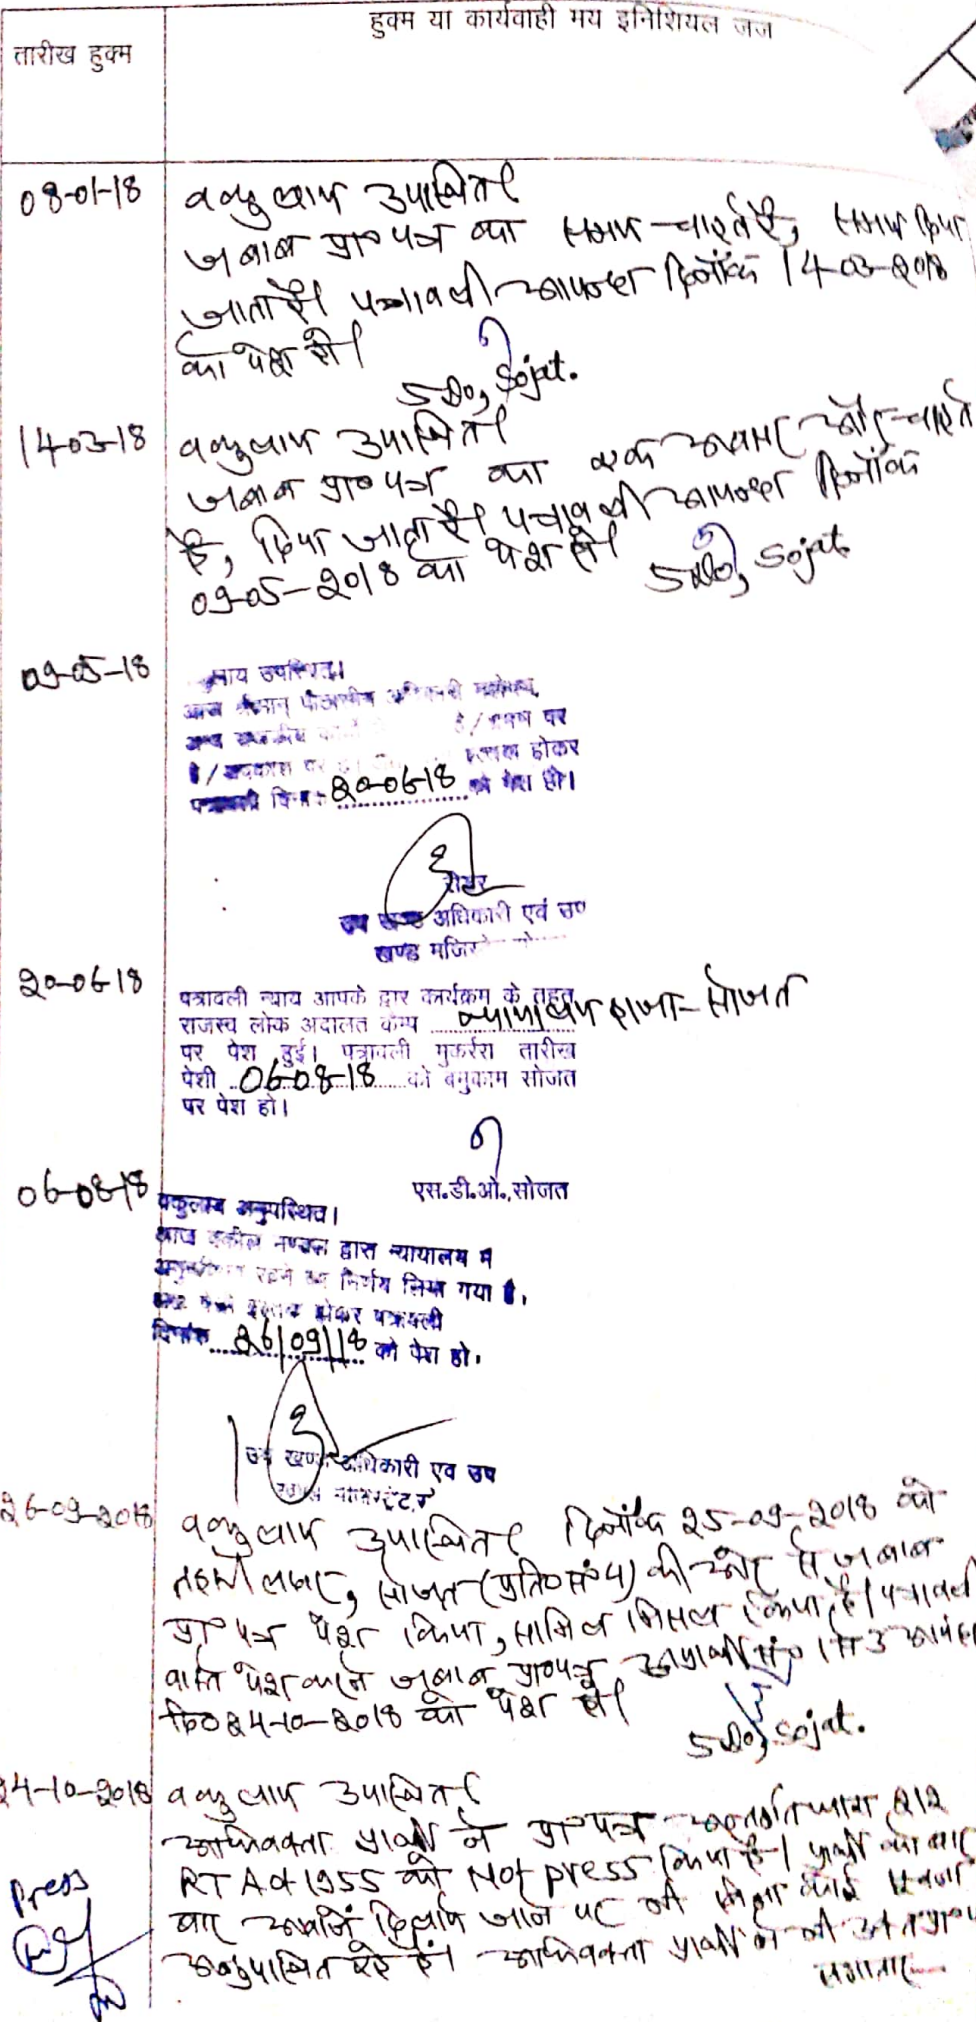 हुक्म या कार्यवाही मय इनिशियल जज
तारीख हुक्म
08-01-18
वकुलाय उपस्थित।
जबाब प्रा० पत्र का समय चाहते है, समय दिया
जाता है। पत्रावली आयन्दा दिनाँक 14-03-2018
को पेश हो।
SDO, Sojat.
14-03-18
वकुलाय उपस्थित।
जबाब प्रा० पत्र का एक अवसर और चाहते
है, दिया जाता है। पत्रावली आयन्दा दिनाँक
09-05-2018 को पेश हो।
SDO, Sojat
09-05-18
उपस्थित।
आज श्रीमान पीठासीन अधिकारी महोदय,
अन्य राजकीय है/भ्रमण पर
है/अवकाश पर होकर
पत्रावली दिनांक 20-06-18 को पेश हो।
उप खण्ड अधिकारी एवं उप
खण्ड
20-06-18
पत्रावली न्याय आपके द्वार कार्यक्रम के तहत
राजस्व लोक अदालत केम्प न्यायालय हाजा-सोजत
पर पेश हुई। पत्रावली मुकर्ररा तारीख
पेशी 06-08-18 को बमुकाम सोजत
पर पेश हो।
एस.डी.ओ.,सोजत
06-08-18
वकुलाय अनुपस्थित।
आज वकील मण्डल द्वारा न्यायालय में
अनुपस्थित रहने का निर्णय लिया गया है,
होकर पत्रावली
दिनांक 26/09/18 को पेश हो।
उप खण्ड अधिकारी एव उप
26-09-2018
वकुलाय उपस्थित। दिनाँक 25-09-2018 को
तहसीलदार, सोजत (प्रति० सं० 4) की ओर से जबाब
प्रा० पत्र पेश किया, सामिल मिसल किया है। पत्रावली
वास्ते पेश करने जबाब प्रा० पत्र अप्रार्थी सं० 1 से 3 आयंदा
दि० 24-10-2018 को पेश हो।
SDO, Sojat.
24-10-2018
वकुलाय उपस्थित।
अधिवक्ता प्रार्थी ने प्रा० पत्र अन्तर्गत धारा 212
RT Act 1955 को Not press किया है। प्रार्थी को बार
बार आवाजें दिलाये जाने पर भी बिना कोई सूचना
अनुपस्थित रहे है। अधिवक्ता प्रार्थी ने भी
लगातार
Press